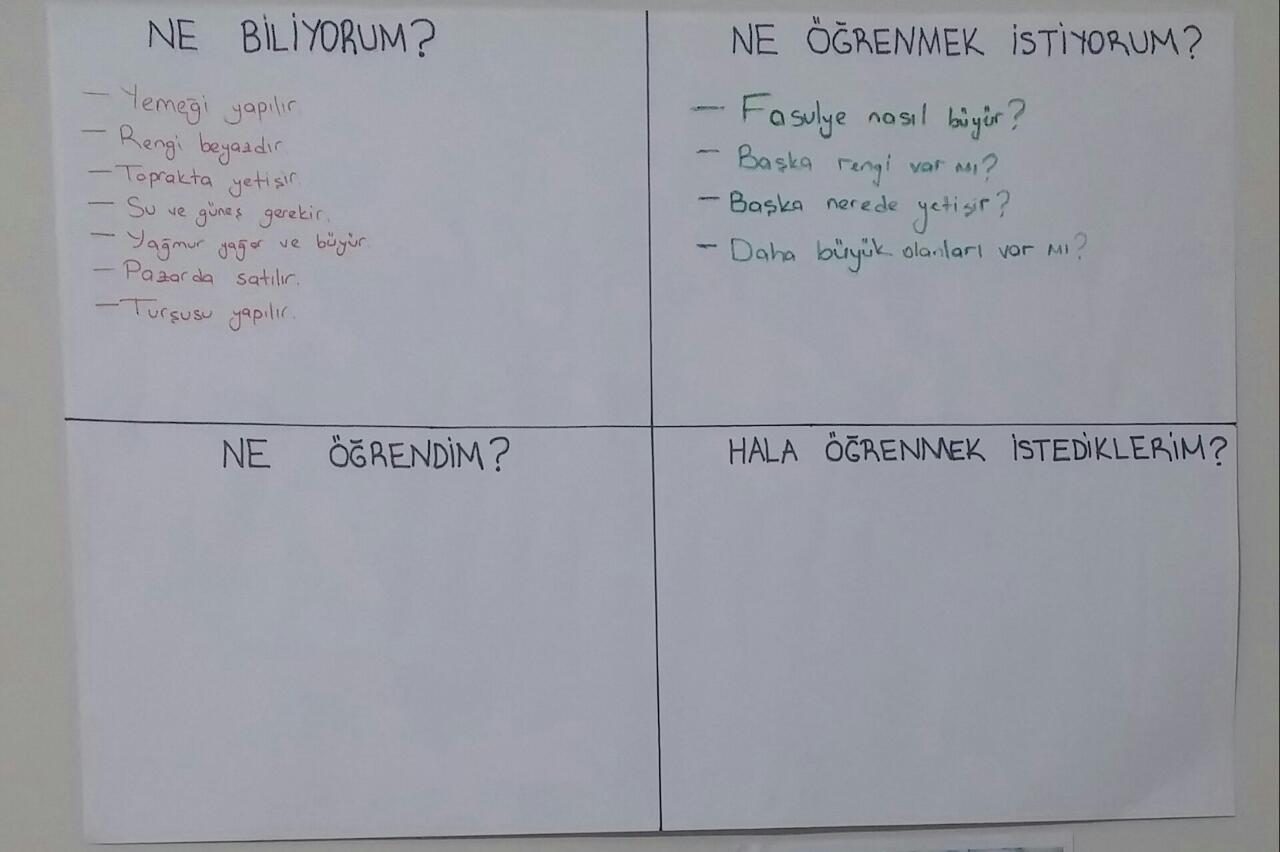 NE BİLİYORUM?
— Yemeği yapılır.
— Rengi beyazdır.
— Toprakta yetişir.
— Su ve güneş gerekir.
— Yağmur yağar ve büyür.
— Pazarda satılır.
— Turşusu yapılır.
NE ÖĞRENMEK İSTİYORUM?
— Fasulye nasıl büyür?
— Başka rengi var mı?
— Başka nerede yetişir?
— Daha büyük olanları var mı?
NE ÖĞRENDİM?
HALA ÖĞRENMEK İSTEDİKLERİM?